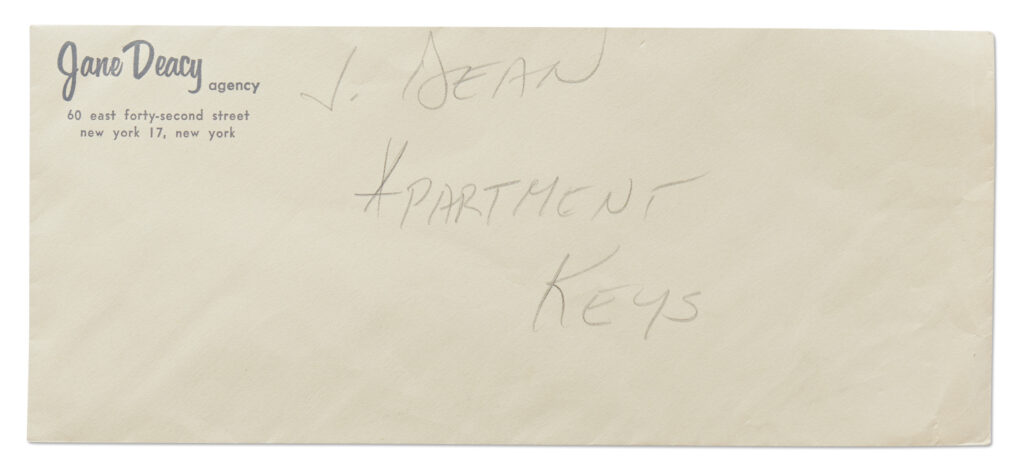 Jane Deacy agency
60 east forty-second street
new york 17, new york
J. DEAN
APARTMENT
KEYS